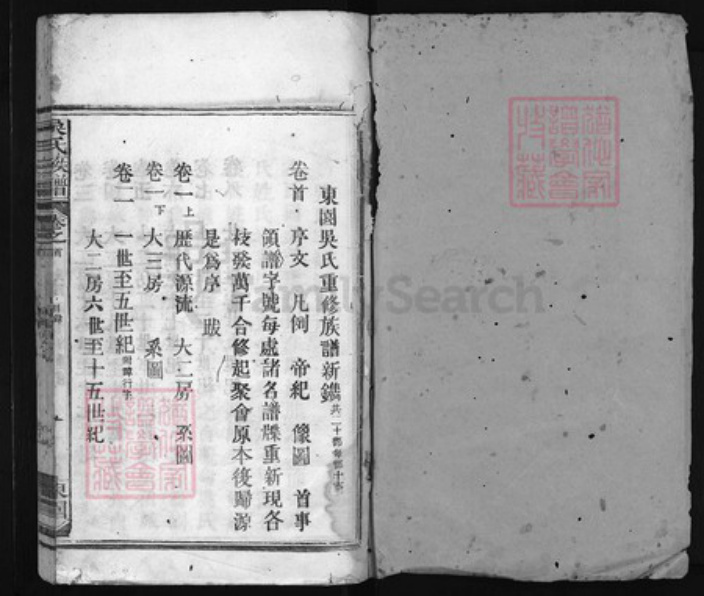 東園吳氏重修族譜新鐫共二十部每部十本
卷首 序文 凡例 帝紀 像圖 首事
領譜字號每處諸名譜牒重新現各
枝發萬千合修起聚會原本後歸源
是為序 跋
卷一上 歷代源流 大二房 系圖
卷一下 大三房 系圖
卷二 一世至五世紀
大二房六世至十五世紀
吳氏族譜
東園
FamilySearch